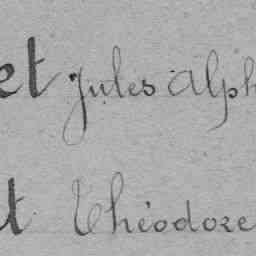 et Jules Alph
t Théodore